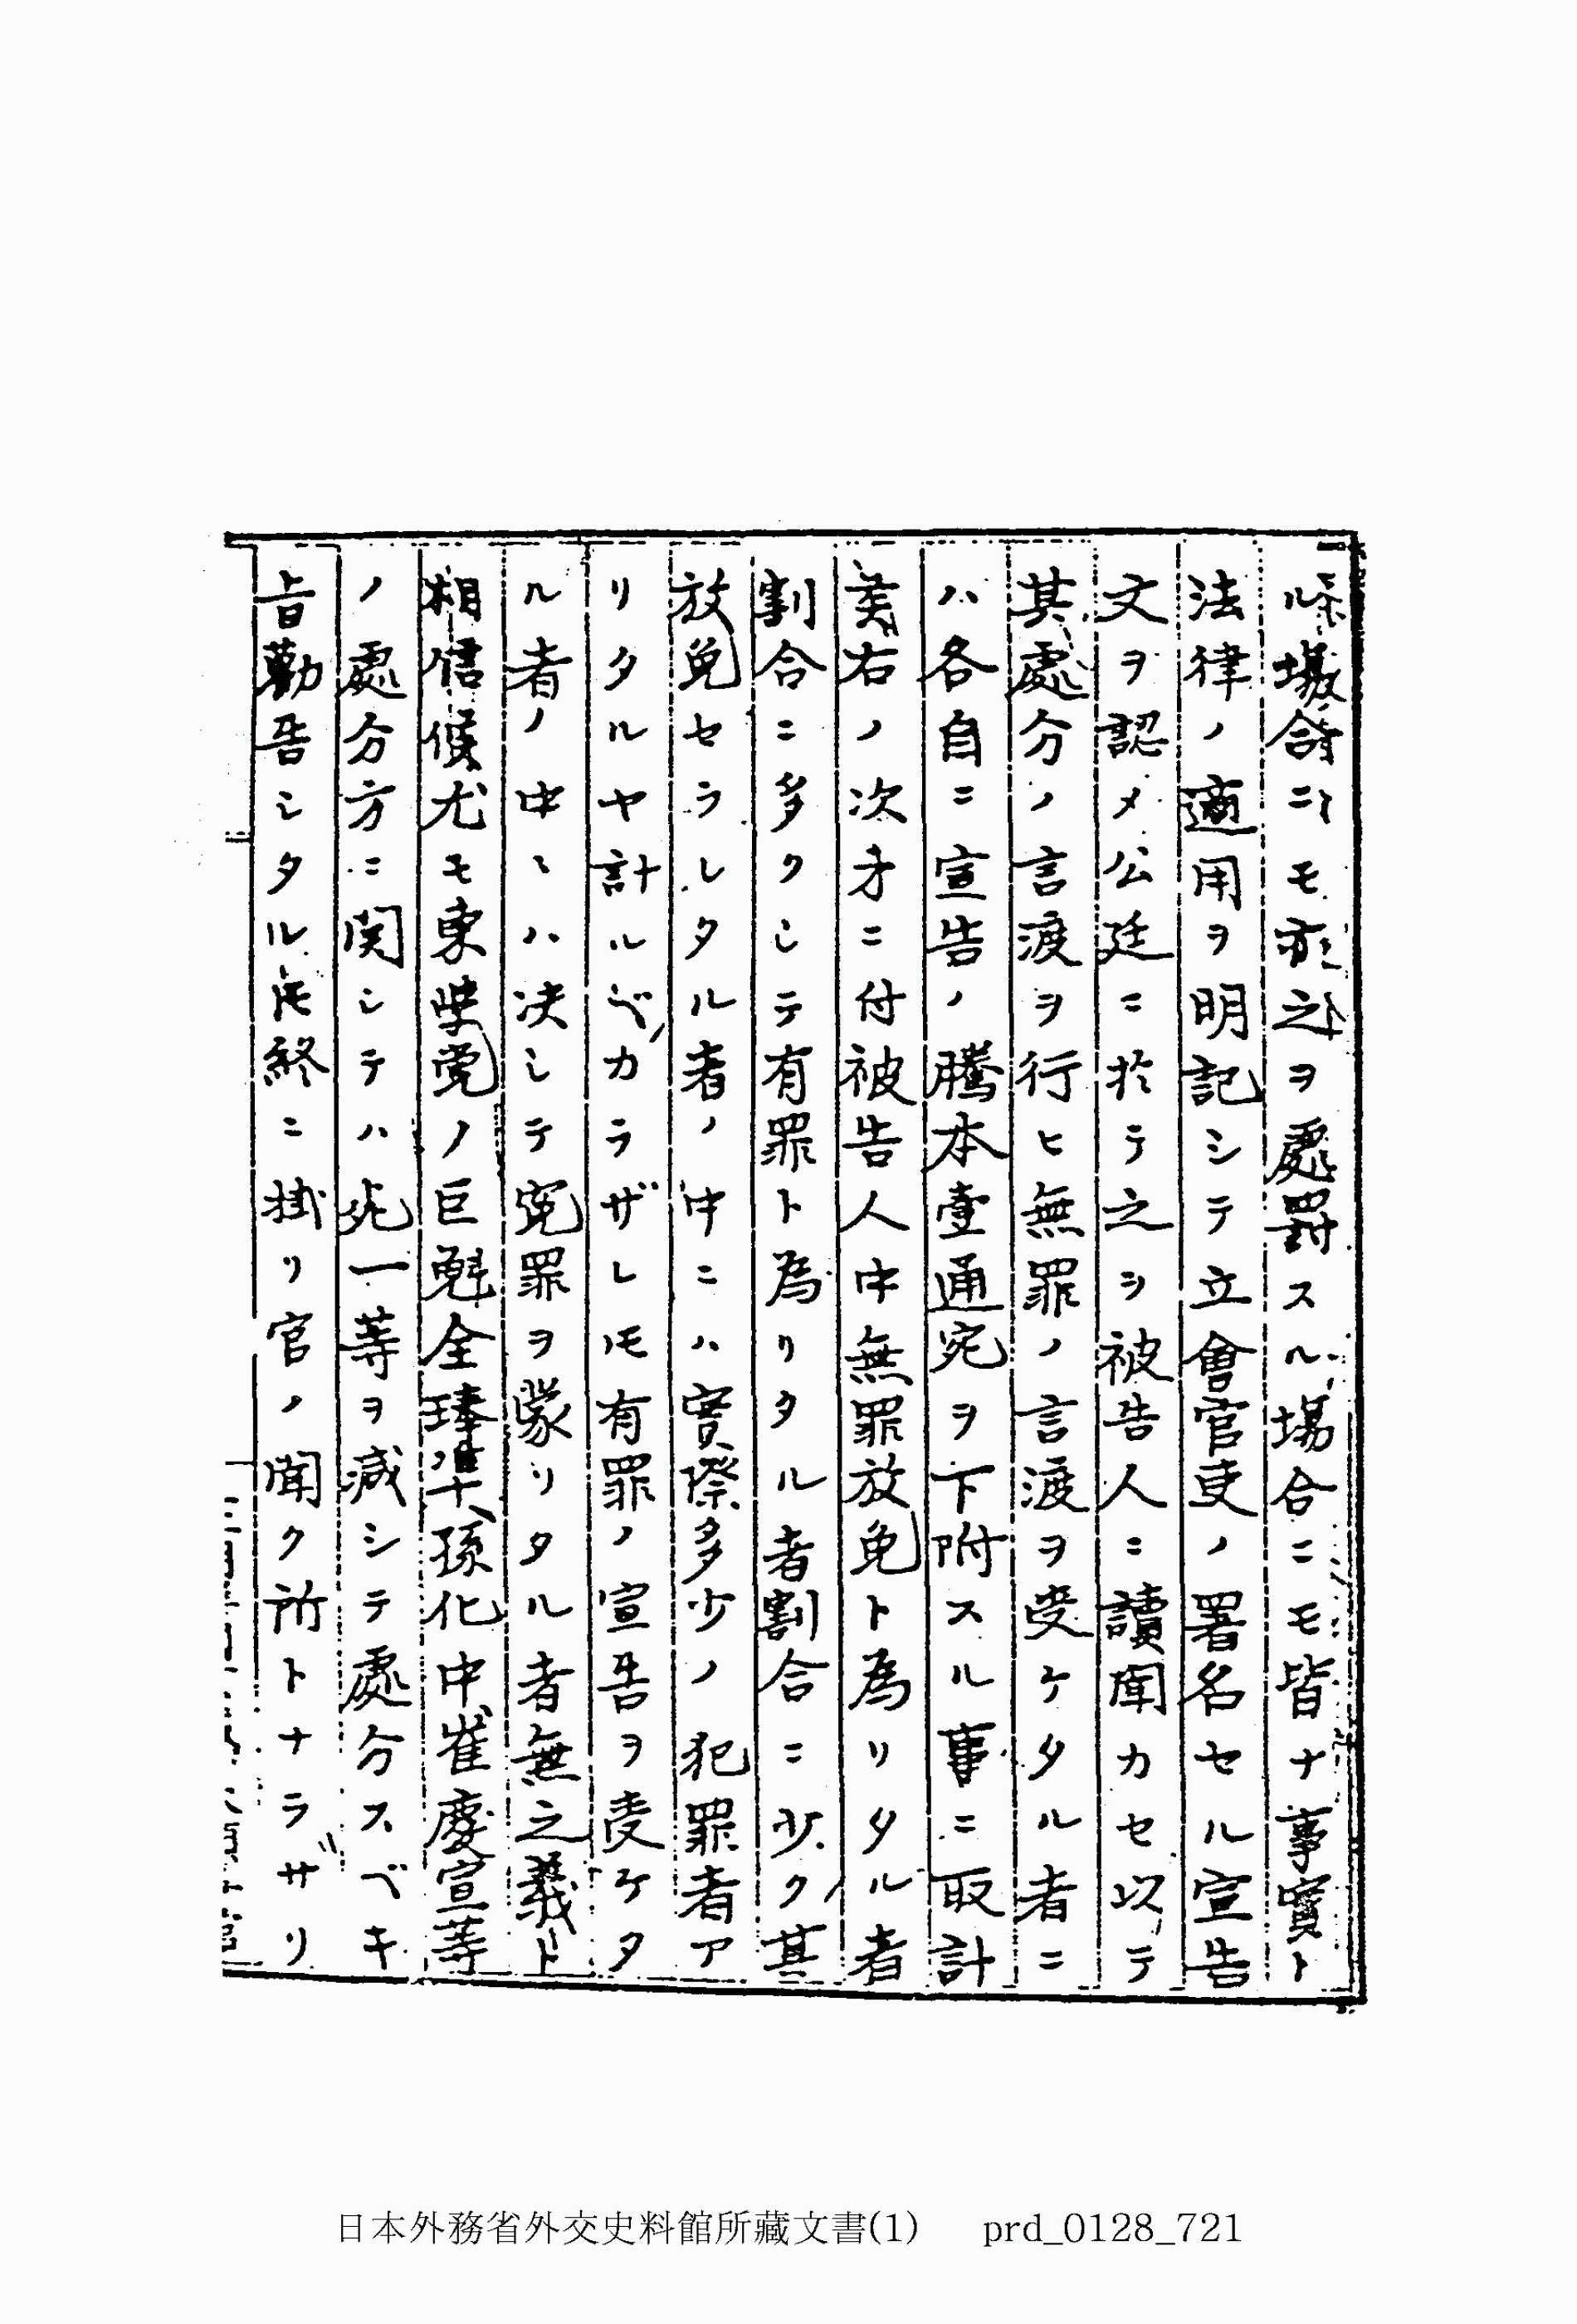 ル場合ニモ亦之ヲ處罰スル場合ニモ皆ナ事實ト
法律ノ適用ヲ明記シテ立會官吏ノ署名セル宣告
文ヲ認メ公廷ニ於テ之ヲ被告人ニ讀聞カセ以テ
其處分ノ言渡ヲ行ヒ無罪ノ言渡ヲ受ケタル者ニ
ハ各自ニ宣告ノ謄本壹通宛ヲ下附スル事ニ取計
候右ノ次才ニ付被告人中無罪放免ト為リタル者
割合ニ多クシテ有罪ト為リタル者割合ニ少ク其
放免セラレタル者ノ中ニハ實際多少ノ犯罪者ア
リタルヤ計ルベカラザレ𪜈有罪ノ宣告ヲ受ケタ
ル者ノ中ニハ决シテ寃罪ヲ蒙リタル者無之義ト
相信候尤モ東學党ノ巨魁全琫準孫化中崔慶宣等
ノ處分方ニ関シテハ死一等ヲ减シテ處分スベキ
旨勸告シタル𪜈終ニ掛リ官ノ聞ク所トナラザリ
日本外務省外交史料館所藏文書(1) prd_0128_721